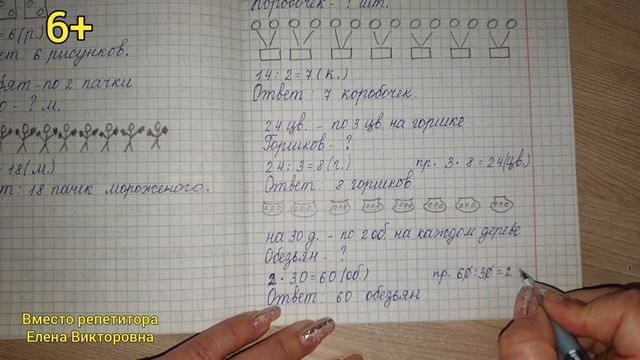 6+
= 6(р.)
ет: 6 рисунков.
бят - по 2 пачки
о - ? м.
= 18(м.)
ет: 18 пачек мороженого.
Коробочек - ? шт.
14 : 2 = 7 (к.)
Ответ: 7 коробочек.
24 цв. - по 3 цв. на горшке
Горшков - ?
24 : 3 = 8 (г.) пр. 3 · 8 = 24 (цв.)
Ответ: 8 горшков
на 30 д. - по 2 об. на каждом дереве
Обезьян - ?
2 · 30 = 60 (об.) пр. 60 : 30 = 2
Ответ: 60 обезьян
Вместо репетитора
Елена Викторовна